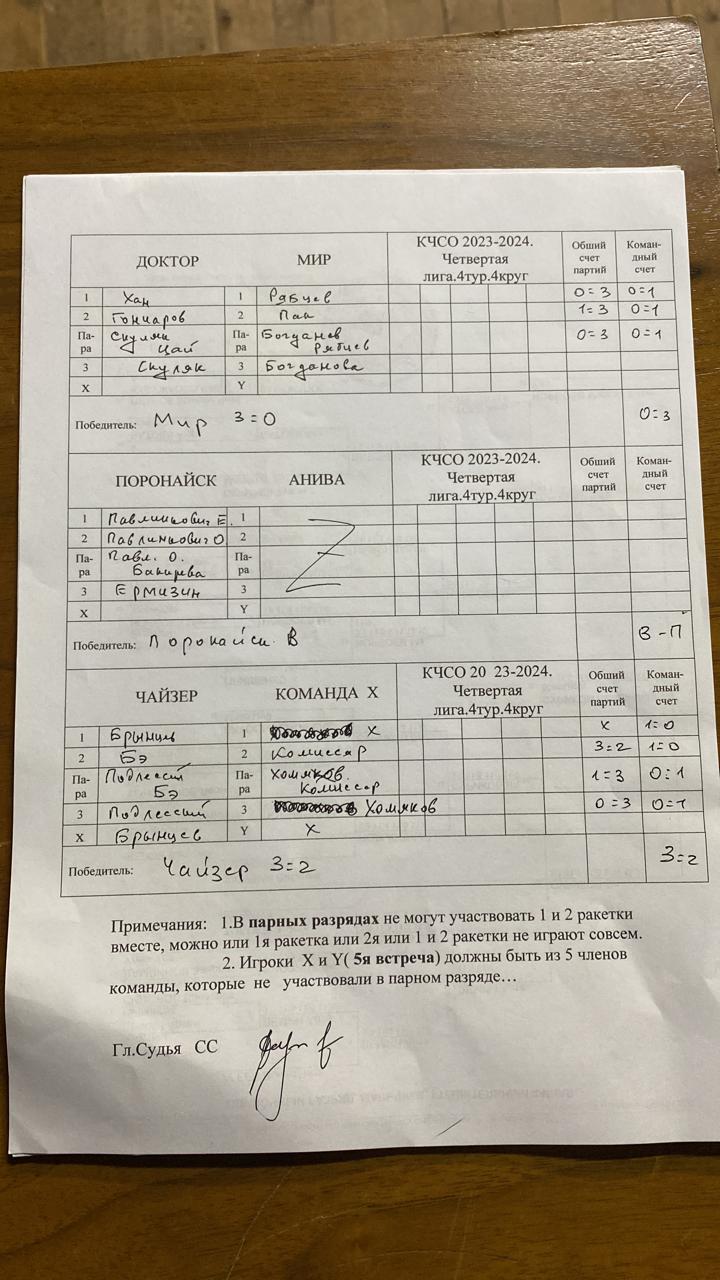 ДОКТОР МИР КЧСО 2023-2024. Четвертая лига.4тур.4круг Обший счет партий Коман-дный счет
1 Хан 1 Рябцев 0=3 0=1
2 Гончаров 2 Пак 1=3 0=1
Па-ра Скуляк Цай Па-ра Богданов Рябцев 0=3 0=1
3 Скуляк 3 Богданова
X Y
Победитель: Мир 3=0 0=3
ПОРОНАЙСК АНИВА КЧСО 2023-2024. Четвертая лига.4тур.4круг Обший счет партий Коман-дный счет
1 Павлинкович Е. 1
2 Павлинкович О 2
Па-ра Павл. О. Па-ра
3 Ермизин 3
X Y
Победитель: Поронайск В В-П
ЧАЙЗЕР КОМАНДА X КЧСО 20 23-2024. Четвертая лига.4тур.4круг Обший счет партий Коман-дный счет
1 Брынцев 1 X X 1=0
2 Бэ 2 Комиссар 3=2 1=0
Па-ра Подлесский Бэ Па-ра Хомяков. Комиссар 1=3 0:1
3 Подлесский 3 Хомяков 0=3 0=1
X Брынцев Y X
Победитель: Чайзер 3=2 3=2
Примечания: 1.В парных разрядах не могут участвовать 1 и 2 ракетки
вместе, можно или 1я ракетка или 2я или 1 и 2 ракетки не играют совсем.
2. Игроки X и Y( 5я встреча) должны быть из 5 членов
команды, которые не участвовали в парном разряде…
Гл.Судья СС